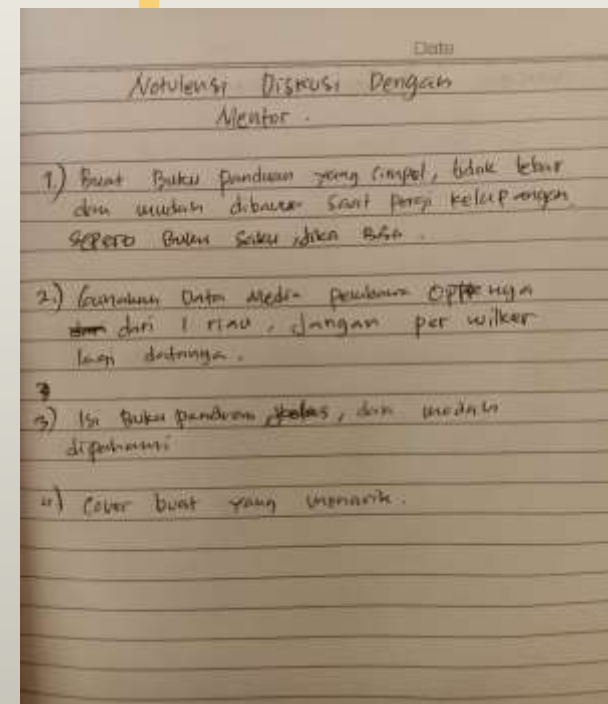 Date
Notulensi Diskusi Dengan
Mentor.
1.) Buat Buku panduan yang simpel, tidak lebar
dan mudah dibawa saat pergi kelapangan
seperti Buku Saku, jika Bisa.
2.) Gunakan Data Media pembawa OPTKnya
dari 1 riau, Jangan per wilker
lagi datanya.
3) Isi Buku panduan, jelas, dan mudah
dipahami
4) Cover buat yang menarik.